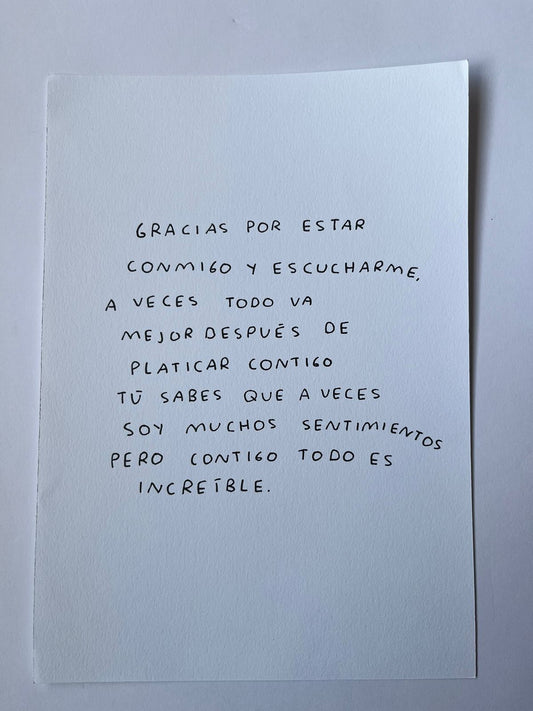 GRACIAS POR ESTAR
CONMIGO Y ESCUCHARME,
A VECES TODO VA
MEJOR DESPUÉS DE
PLATICAR CONTIGO
TÚ SABES QUE A VECES
SOY MUCHOS SENTIMIENTOS
PERO CONTIGO TODO ES
INCREÍBLE.